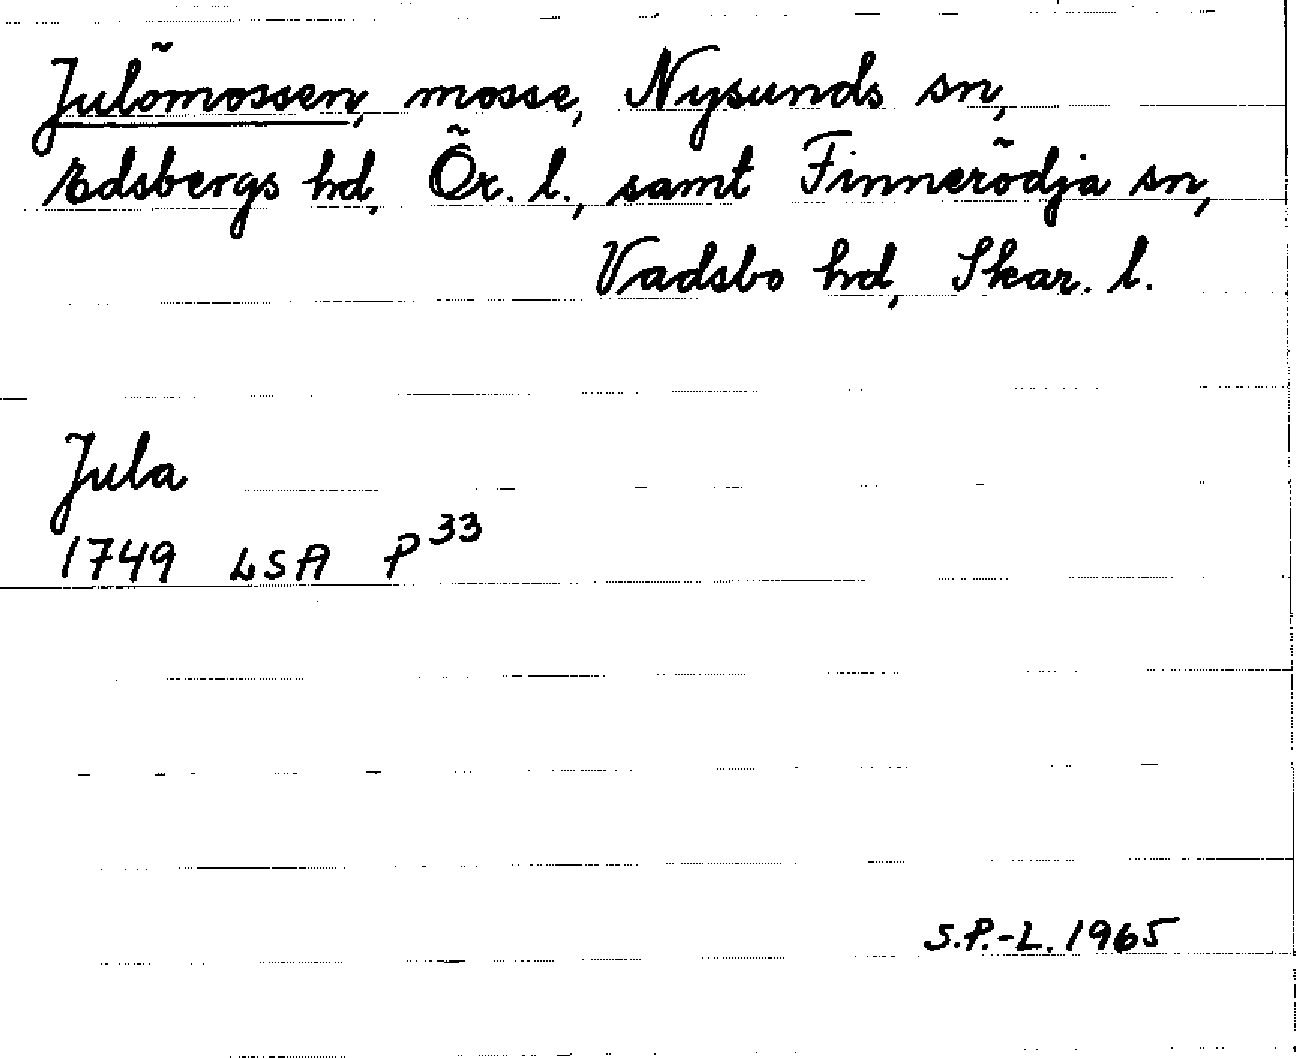 Julömossen, mosse, Nysunds sn,
Edsbergs hd, Ör. l., samt Finnerödja sn,
Vadsbo hd, Skar. l.
Jula
1749 LSA P 33
S.P.-L. 1965